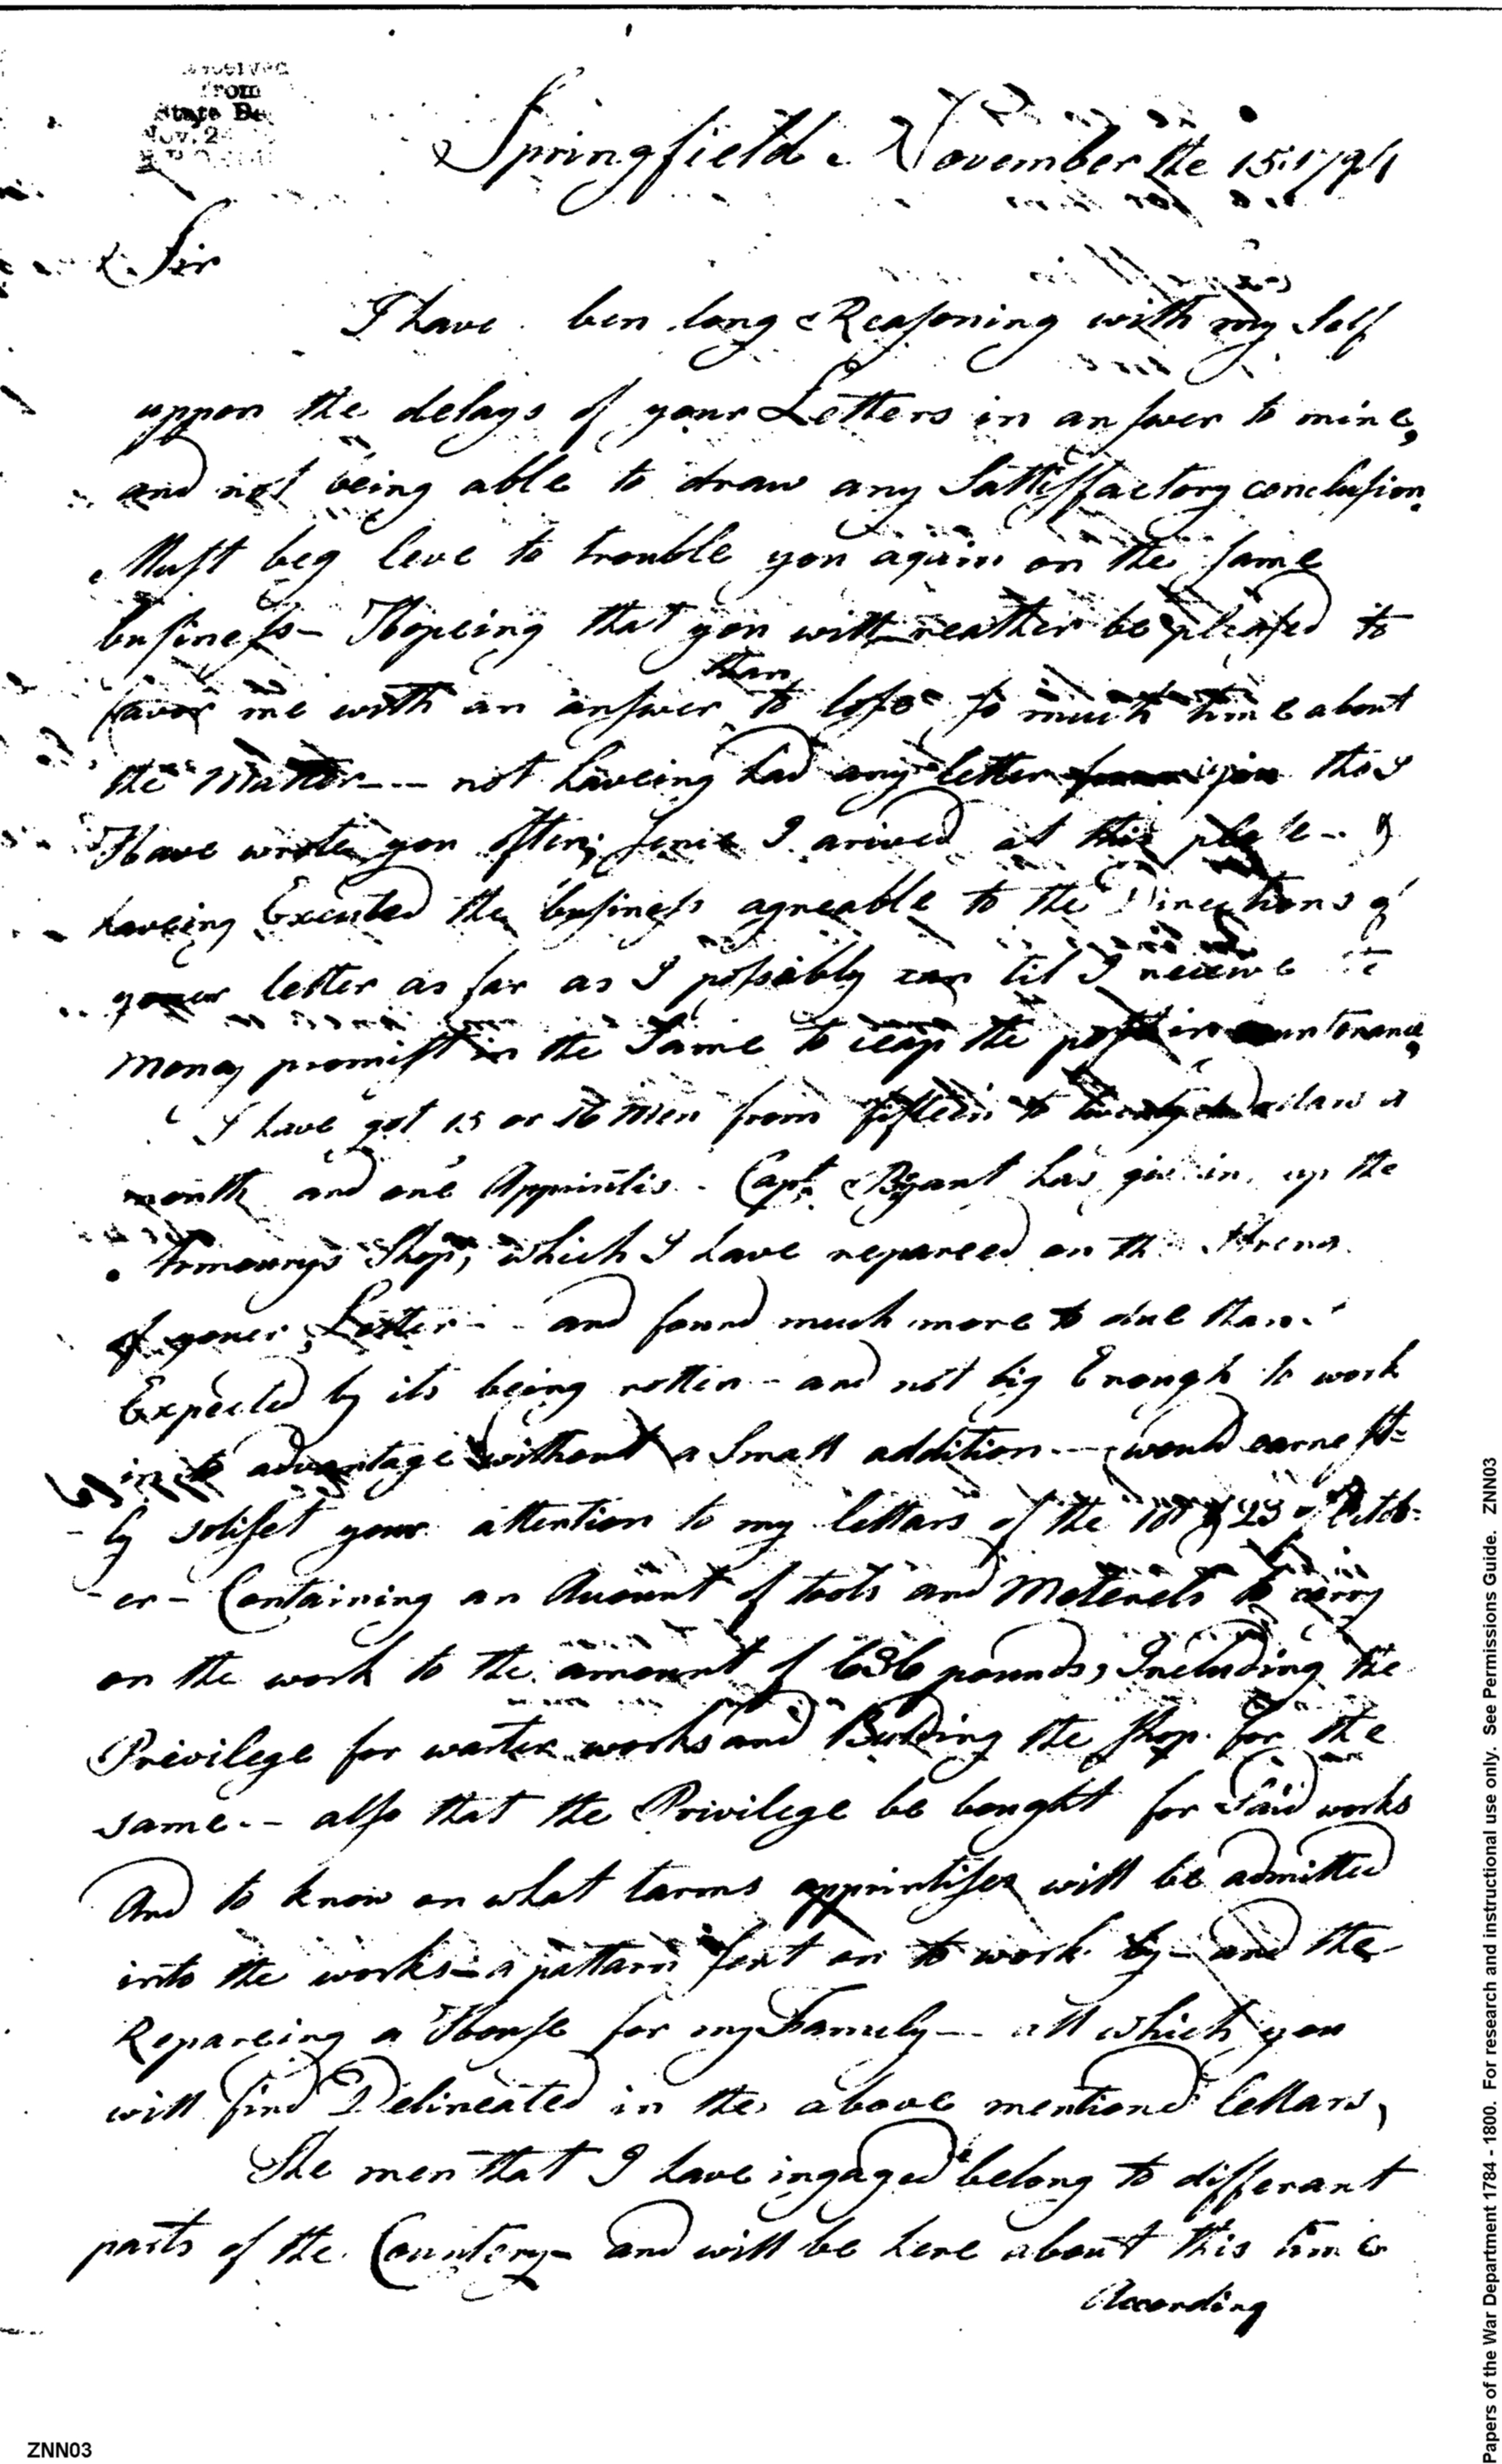 from
State De
Nov. 2
Springfield November the 15. 1794
Sir
I have ben long Reasoning with my Self
uppon the delays of your Letters in answer to mine,
and not being able to draw any Sattisfactory conclusion.
Must beg leve to trouble you again on the same
business - Hopeing that you will reather be pleased to
than
favor me with an answer to lose so much time about
the Matter -- not haveing had any letter tho I
Have wrote you often; senc I arived at this place -
haveing Excuted the business agreable to the Directions of
your letter as far as I possibly can til I receive the
money promist in the Same to ceap the post in countenance,
I have got 15 or 16 Men from fifteen to twenty dolars a
month and one Apprintis - Capt. Bryant has givin up the
Armourys Shop, which I have repareed on the Streng
of youer Letter - and found much more to due than I
Expected by its being rotten - and not big Enough to work
in to advantage without a Small addition -- would earnest=
ly solifet your attention to my lettars of the 18 & 23 of Octob-
-er - Containing an Acount of tools and Meteriels to carry
on the work to the amount of 636 pounds, Including the
Privilege for warter works and Bulding the shop for the
same. - also that the Privilege be bought for Said works
And to know on what tarms apprintises will be admitted
into the works - a pattarn sent on to work by - and the
Repareing a House for my Famely -- all which you
will find Delineated in the above mentioned lettars,
The men that I have ingaged belong to differant
parts of the Countery - and will be here about this time
According
ZNN03
Papers of the War Department 1784 - 1800. For research and instructional use only. See Permissions Guide. ZNN03